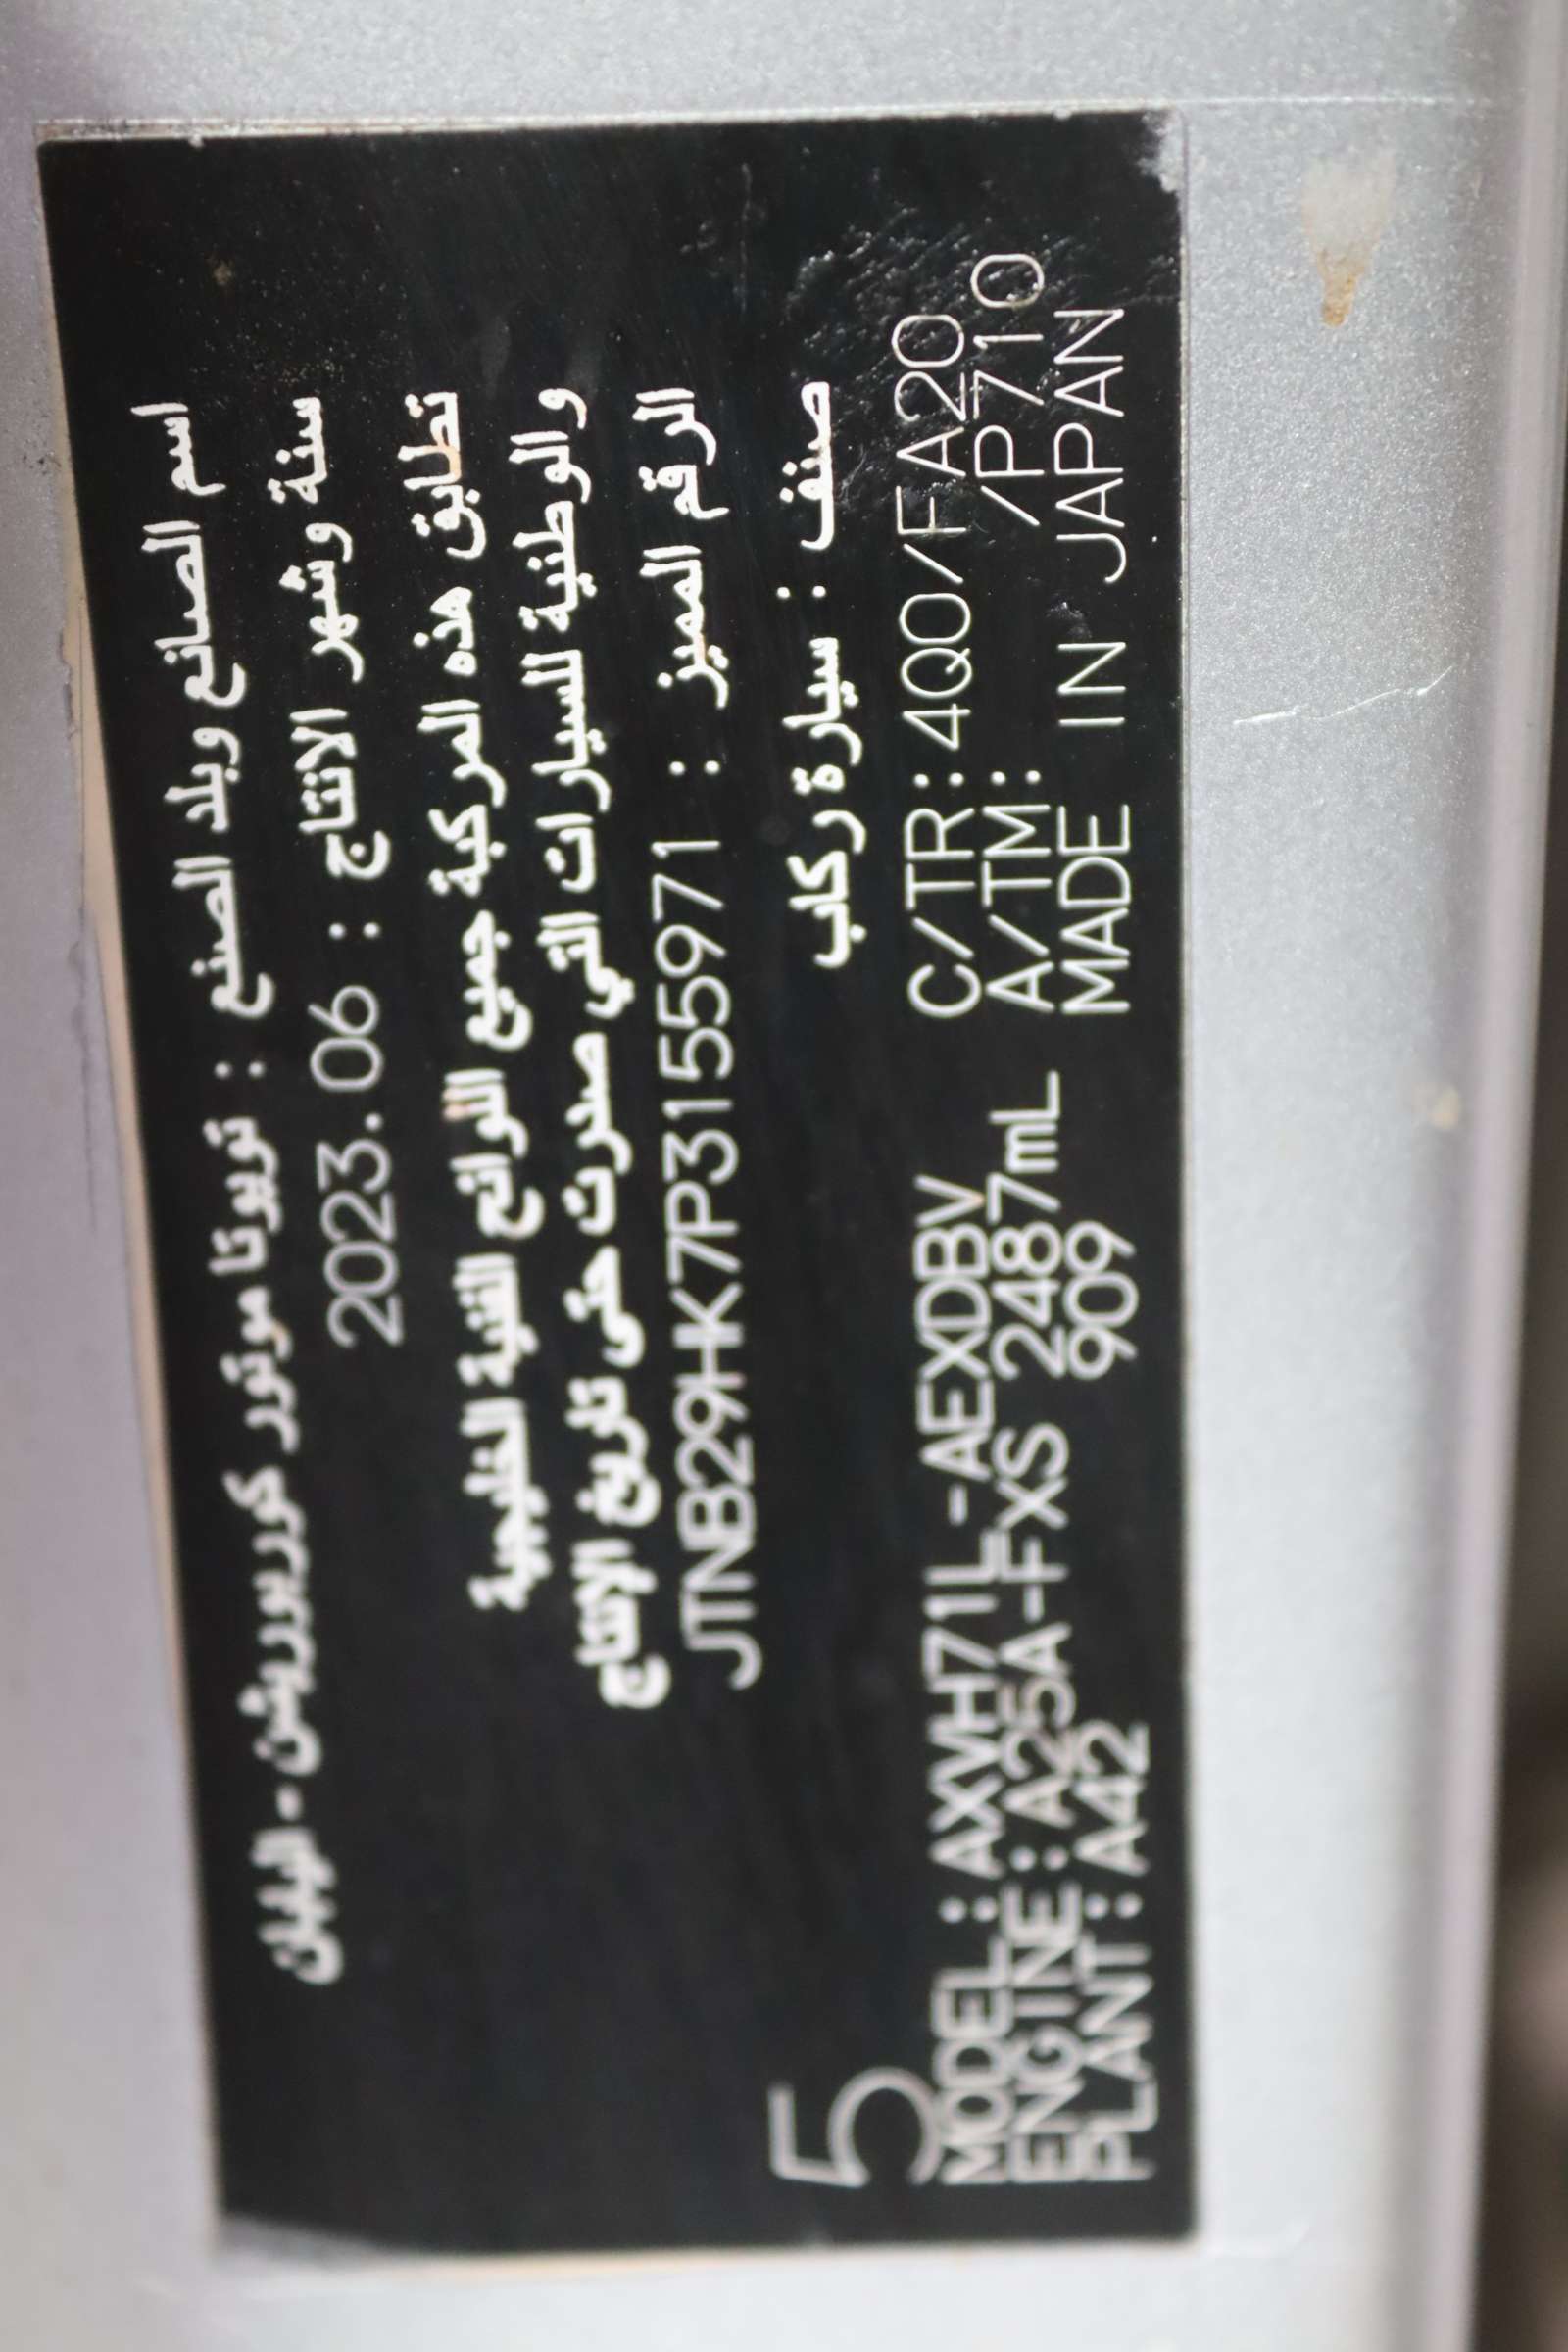 اسم الصانع وبلد الصنع : تويوتا موتور كوربوريشن - اليابان
سنة وشهر الانتاج : 2023.06
تطابق هذه المركبة جميع اللوائح الفنية الخليجية
والوطنية للسيارات التي صدرت حتى تاريخ الإنتاج
الرقم المميز : JTNB29HK7P3155971
صنف : سيارة ركاب
5
MODEL : AXVH71L-AEXDBV C/TR: 4Q0/FA20
ENGINE : A25A-FXS 2487mL A/TM: /P710
PLANT : A42 909 MADE IN JAPAN